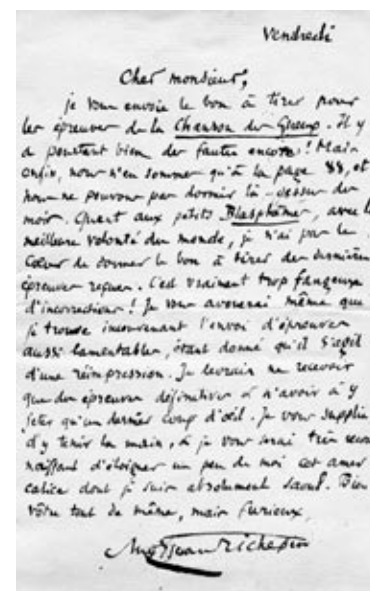 Vendredi
Cher monsieur,
je vous envoie le bon à tirer pour
les épreuves de la Chanson des Gueux. Il y
a pourtant bien des fautes encore ! Mais
enfin, nous n'en sommes qu'à la page 88, et
nous ne pouvons pas dormir là-dessus des
mois. Quant aux petits Blasphèmes, avec la
meilleure volonté du monde, je n'ai pas le
cœur de donner le bon à tirer des dernières
épreuves reçues. C'est vraiment trop fangeux
d'incorrections ! Je vous avouerai même que
je trouve inconvenant l'envoi d'épreuves
aussi lamentables, étant donné qu'il s'agit
d'une réimpression. Je devrais ne recevoir
que des épreuves définitives & n'avoir à y
jeter qu'un dernier coup d'œil. Je vous supplie
d'y tenir la main, & je vous serai très recon
naissant d'éloigner un peu de moi cet amer
calice dont je suis absolument saoul. Bien
vôtre tout de même, mais furieux,
Jean Richepin